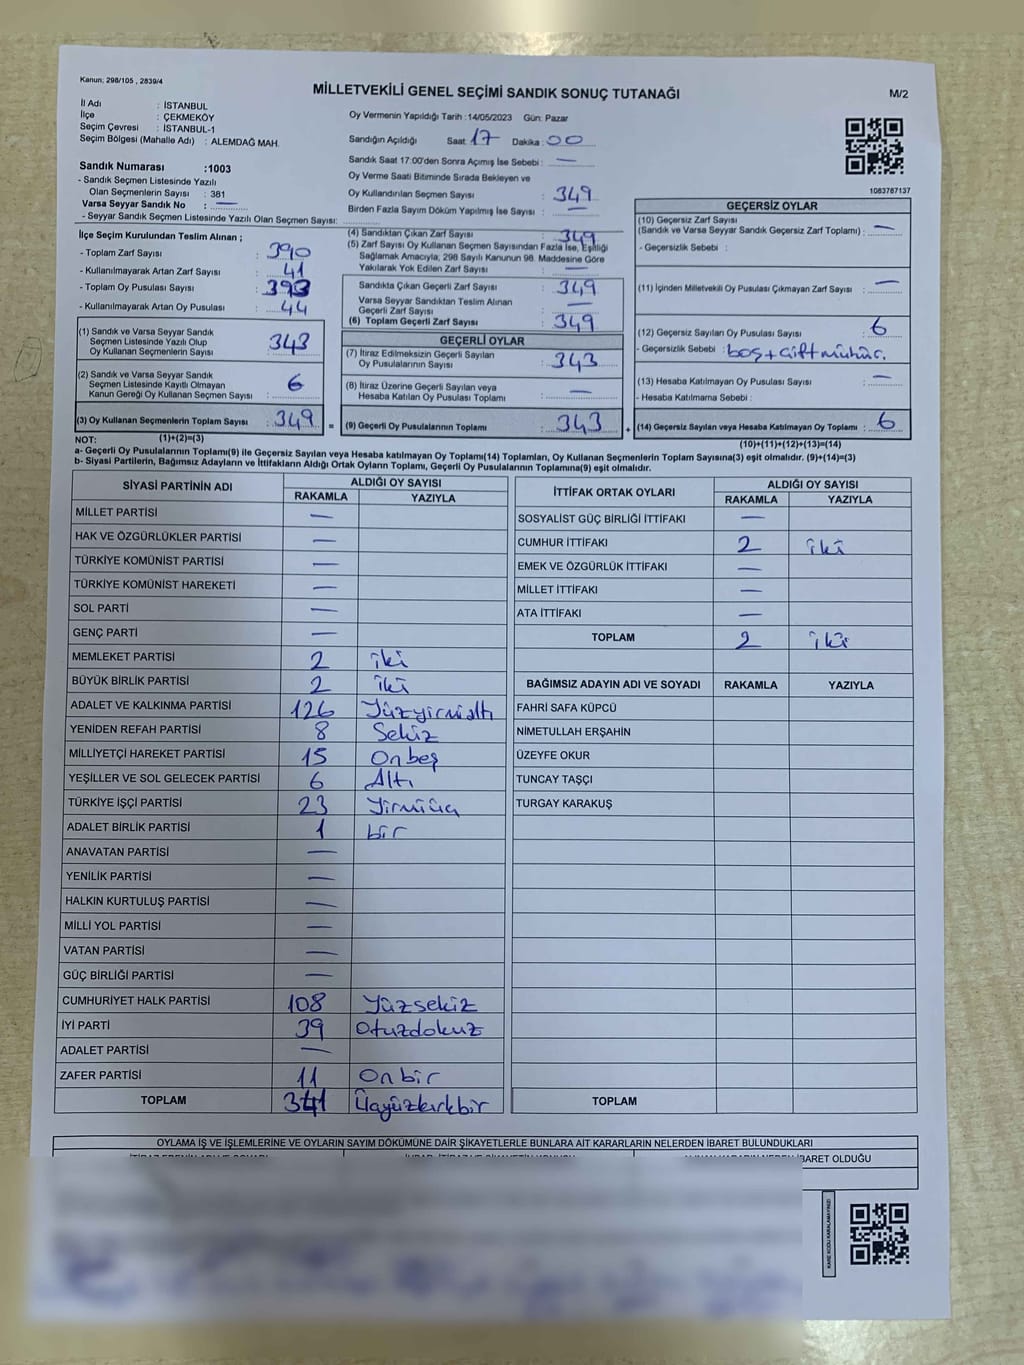 Kanun: 298/105 , 2839/4
MİLLETVEKİLİ GENEL SEÇİMİ SANDIK SONUÇ TUTANAĞI
M/2
İl Adı : İSTANBUL
İlçe : ÇEKMEKÖY
Seçim Çevresi : İSTANBUL-1
Seçim Bölgesi (Mahalle Adı) : ALEMDAĞ MAH.
Sandık Numarası :1003
- Sandık Seçmen Listesinde Yazılı
Olan Seçmenlerin Sayısı : 381
Varsa Seyyar Sandık No : —
- Seyyar Sandık Seçmen Listesinde Yazılı Olan Seçmen Sayısı:
Oy Vermenin Yapıldığı Tarih :14/05/2023 Gün: Pazar
Sandığın Açıldığı Saat: 17 Dakika: 00
Sandık Saat 17:00'den Sonra Açımış İse Sebebi : —
Oy Verme Saati Bitiminde Sırada Bekleyen ve
Oy Kullandırılan Seçmen Sayısı : 349
Birden Fazla Sayım Döküm Yapılmış İse Sayısı : —
1083787137
İlçe Seçim Kurulundan Teslim Alınan ;
- Toplam Zarf Sayısı : 390
- Kullanılmayarak Artan Zarf Sayısı : 41
- Toplam Oy Pusulası Sayısı : 393
- Kullanılmayarak Artan Oy Pusulası : 44
(1) Sandık ve Varsa Seyyar Sandık
Seçmen Listesinde Yazılı Olup
Oy Kullanan Seçmenlerin Sayısı : 343
(2) Sandık ve Varsa Seyyar Sandık
Seçmen Listesinde Kayıtlı Olmayan
Kanun Gereği Oy Kullanan Seçmen Sayısı : 6
(3) Oy Kullanan Seçmenlerin Toplam Sayısı : 349
(1)+(2)=(3)
(4) Sandıktan Çıkan Zarf Sayısı : 349
(5) Zarf Sayısı Oy Kullanan Seçmen Sayısından Fazla İse, Eşitliği
Sağlamak Amacıyla, 298 Sayılı Kanunun 98. Maddesine Göre
Yakılarak Yok Edilen Zarf Sayısı : —
Sandıkta Çıkan Geçerli Zarf Sayısı : 349
Varsa Seyyar Sandıktan Teslim Alınan
Geçerli Zarf Sayısı : —
(6) Toplam Geçerli Zarf Sayısı : 349
GEÇERLİ OYLAR
(7) İtiraz Edilmeksizin Geçerli Sayılan
Oy Pusulalarının Sayısı : 343
(8) İtiraz Üzerine Geçerli Sayılan veya
Hesaba Katılan Oy Pusulası Toplamı : —
= (9) Geçerli Oy Pusulalarının Toplamı : 343 +
GEÇERSİZ OYLAR
(10) Geçersiz Zarf Sayısı
(Sandık ve Varsa Seyyar Sandık Geçersiz Zarf Toplamı) : —
- Geçersizlik Sebebi :
(11) İçinden Milletvekili Oy Pusulası Çıkmayan Zarf Sayısı : —
(12) Geçersiz Sayılan Oy Pusulası Sayısı : 6
- Geçersizlik Sebebi : boş+çift mühür.
(13) Hesaba Katılmayan Oy Pusulası Sayısı : —
- Hesaba Katılmama Sebebi :
(14) Geçersiz Sayılan veya Hesaba Katılmayan Oy Toplamı : 6
(10)+(11)+(12)+(13)=(14)
NOT:
a- Geçerli Oy Pusulalarının Toplamı(9) ile Geçersiz Sayılan veya Hesaba katılmayan Oy Toplamı(14) Toplamları, Oy Kullanan Seçmenlerin Toplam Sayısına(3) eşit olmalıdır. (9)+(14)=(3)
b- Siyasi Partilerin, Bağımsız Adayların ve İttifakların Aldığı Ortak Oyların Toplamı, Geçerli Oy Pusulalarının Toplamına(9) eşit olmalıdır.
SİYASİ PARTİNİN ADI ALDIĞI OY SAYISI
RAKAMLA YAZIYLA
MİLLET PARTİSİ —
HAK VE ÖZGÜRLÜKLER PARTİSİ —
TÜRKİYE KOMÜNİST PARTİSİ —
TÜRKİYE KOMÜNİST HAREKETİ —
SOL PARTİ —
GENÇ PARTİ —
MEMLEKET PARTİSİ 2 iki
BÜYÜK BİRLİK PARTİSİ 2 iki
ADALET VE KALKINMA PARTİSİ 126 Yüzyirmialtı
YENİDEN REFAH PARTİSİ 8 Sekiz
MİLLİYETÇİ HAREKET PARTİSİ 15 Onbeş
YEŞİLLER VE SOL GELECEK PARTİSİ 6 Altı
TÜRKİYE İŞÇİ PARTİSİ 23 Yirmiüç
ADALET BİRLİK PARTİSİ 1 bir
ANAVATAN PARTİSİ —
YENİLİK PARTİSİ —
HALKIN KURTULUŞ PARTİSİ —
MİLLİ YOL PARTİSİ —
VATAN PARTİSİ —
GÜÇ BİRLİĞİ PARTİSİ —
CUMHURİYET HALK PARTİSİ 108 Yüzsekiz
İYİ PARTİ 39 Otuzdokuz
ADALET PARTİSİ —
ZAFER PARTİSİ 11 Onbir
TOPLAM 341 Üçyüzkırkbir
İTTİFAK ORTAK OYLARI ALDIĞI OY SAYISI
RAKAMLA YAZIYLA
SOSYALİST GÜÇ BİRLİĞİ İTTİFAKI —
CUMHUR İTTİFAKI 2 iki
EMEK VE ÖZGÜRLÜK İTTİFAKI —
MİLLET İTTİFAKI —
ATA İTTİFAKI —
TOPLAM 2 iki
BAĞIMSIZ ADAYIN ADI VE SOYADI RAKAMLA YAZIYLA
FAHRİ SAFA KÜPCÜ
NİMETULLAH ERŞAHİN
ÜZEYFE OKUR
TUNCAY TAŞÇI
TURGAY KARAKUŞ
TOPLAM
OYLAMA İŞ VE İŞLEMLERİNE VE OYLARIN SAYIM DÖKÜMÜNE DAİR ŞİKAYETLERLE BUNLARA AİT KARARLARIN NELERDEN İBARET BULUNDUKLARI
İBARET OLDUĞU
KARE KODU KARALAMAYINIZ!